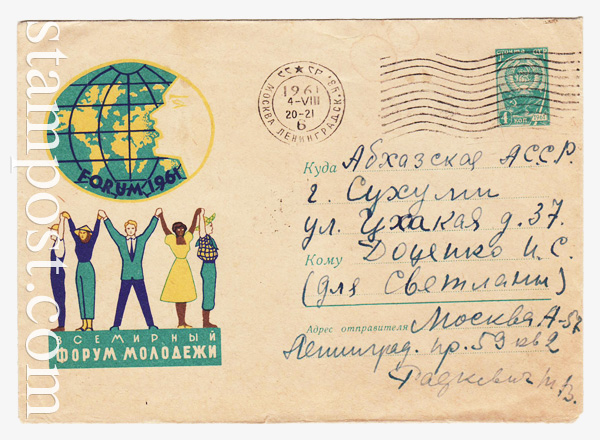 stampost.com
FORUM, 1961
ВСЕМИРНЫЙ
ФОРУМ МОЛОДЕЖИ
1961
4-VIII
20-21
6
МОСКВА ЛЕНИНГРАДСК
Куда Абхазская АССР.
г. Сухуми
ул. Цхакая д. 37.
Кому Доценко И. С.
(для Светланы)
Адрес отправителя Москва А-57
Ленинград. пр. 59 кв 2
Радкевич